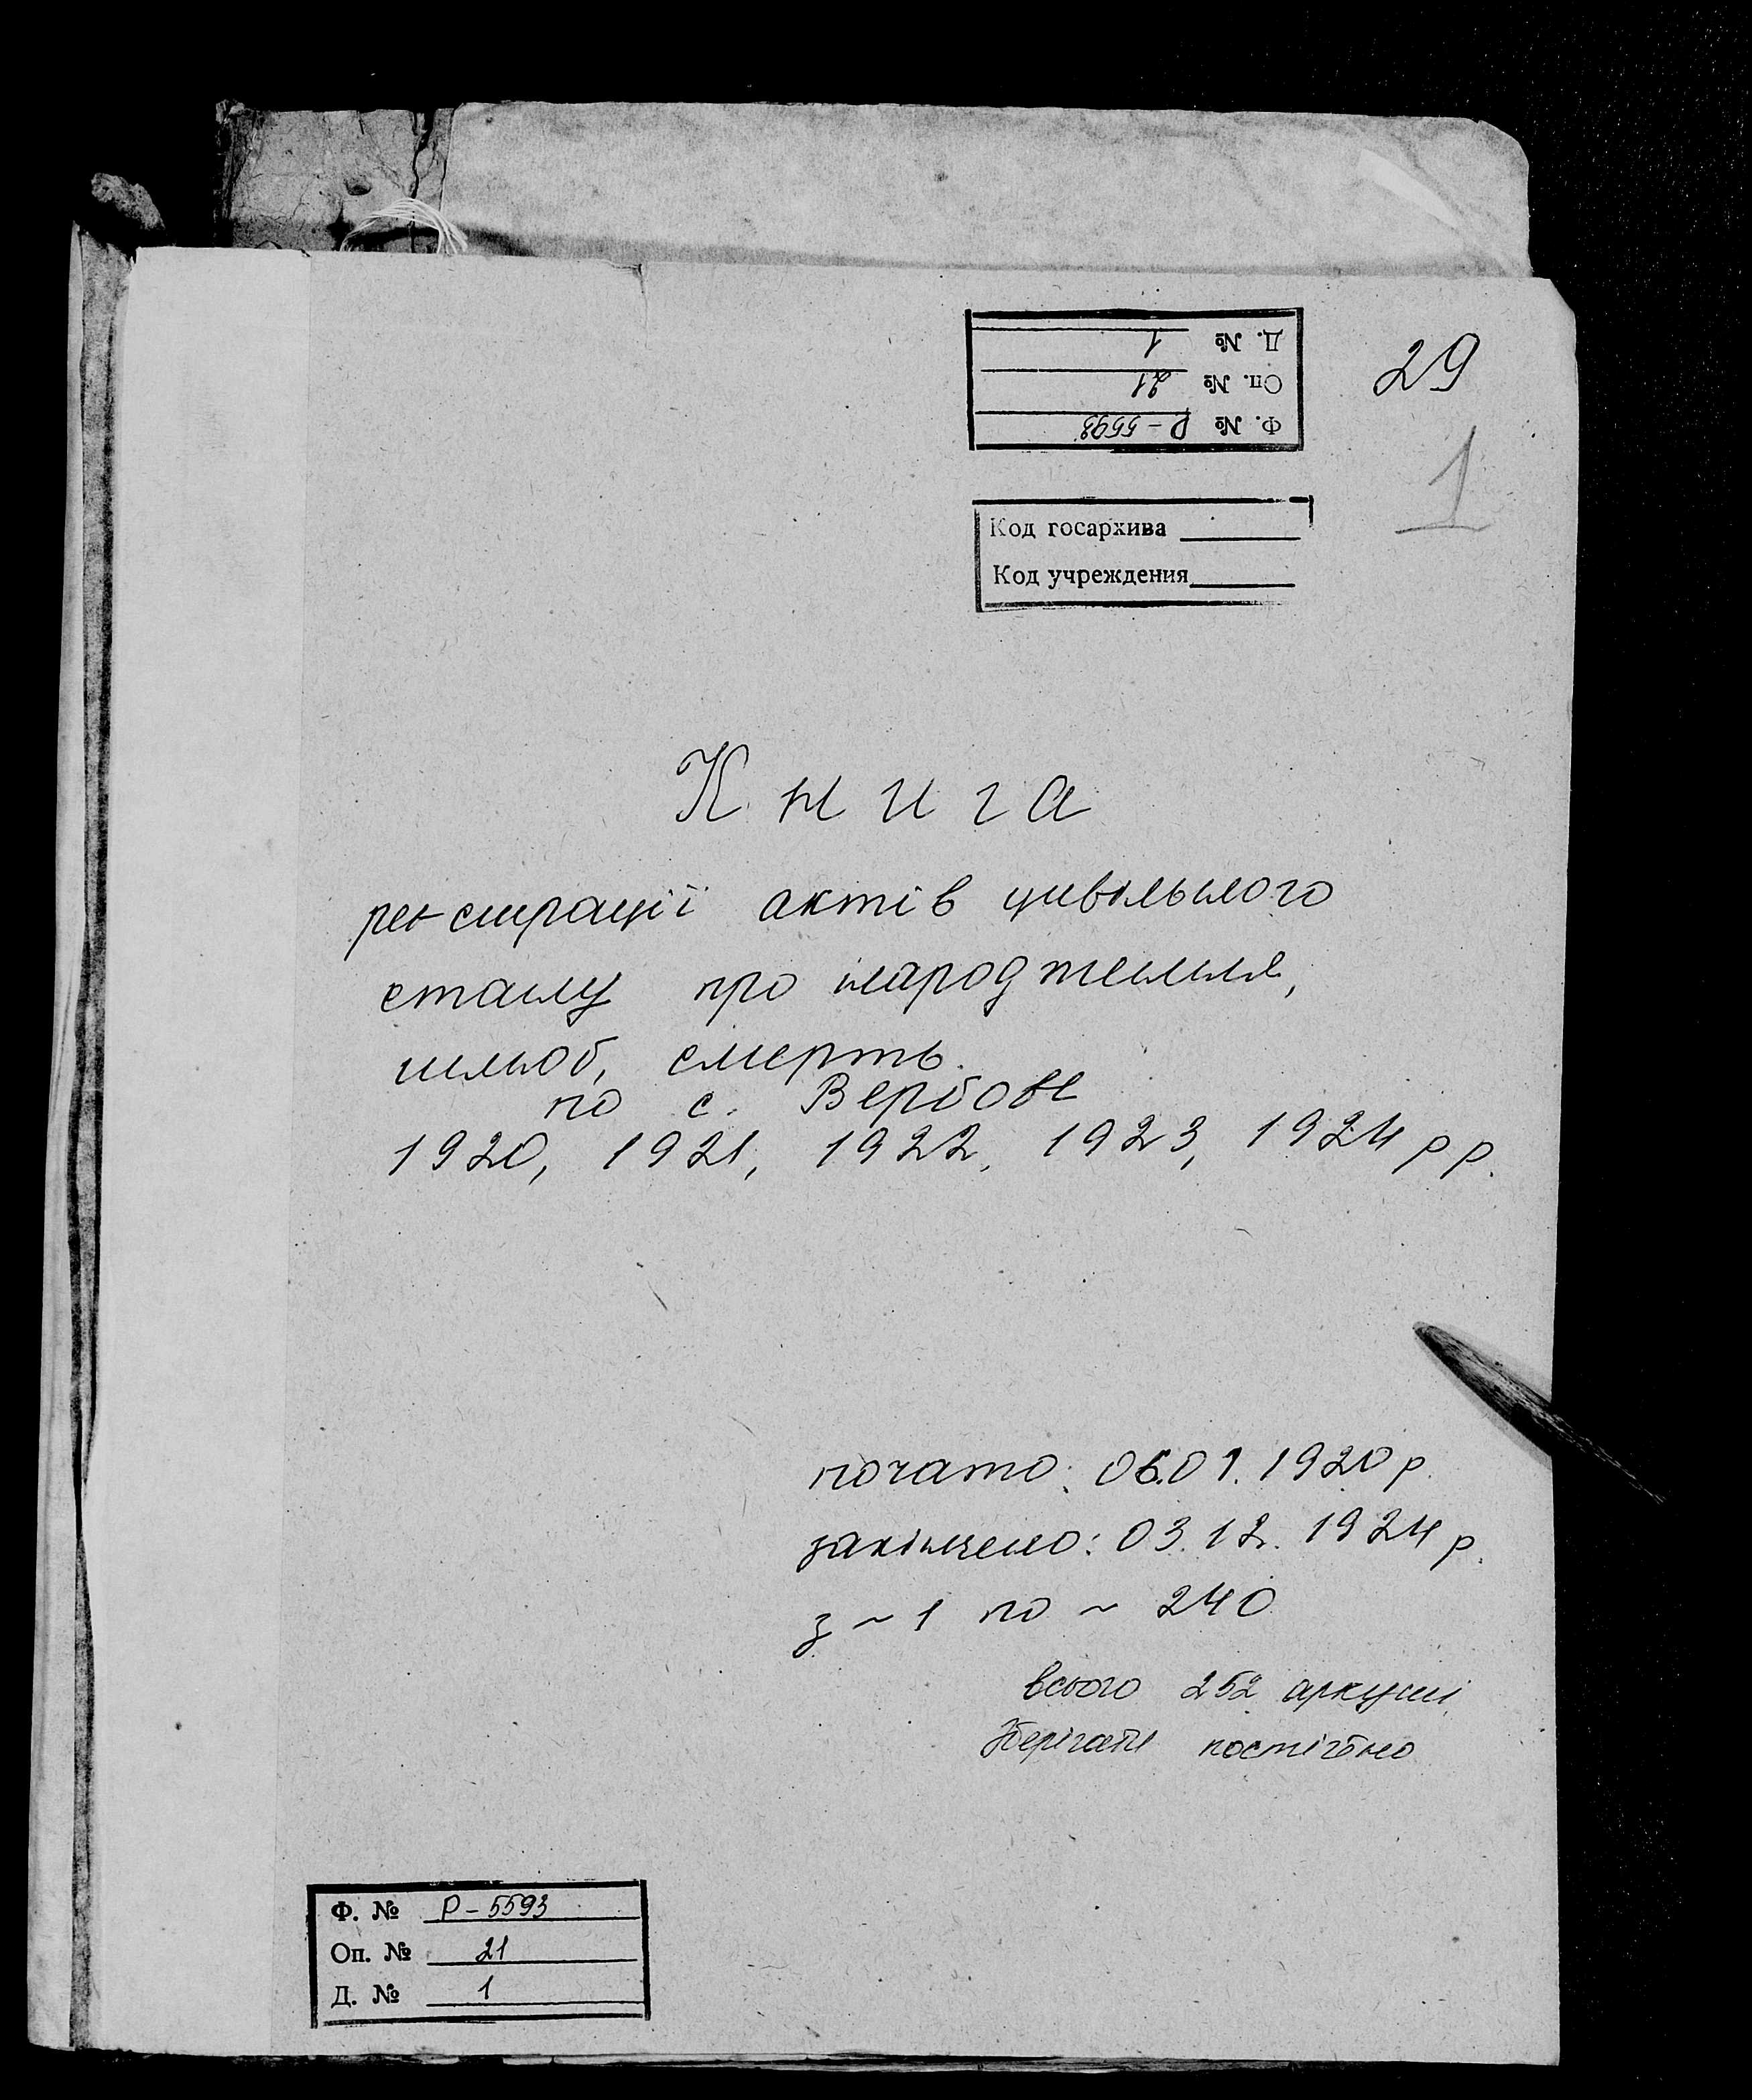 Д. № 1
Оп. № 21
Ф. № Р-5593
29
1
Код госархива
Код учреждения
Книга
реєстрації актів цивільного
стану про народження,
шлюб, смерть.
по с. Вербове
1920, 1921, 1922, 1923, 1924 рр.
почато: 06.01.1920 р.
закінчено: 03.12.1924 р.
з ~ 1 по ~ 240
всього 252 аркуші
Зберігати постійно
Ф. № Р-5593
Оп. № 21
Д. № 1